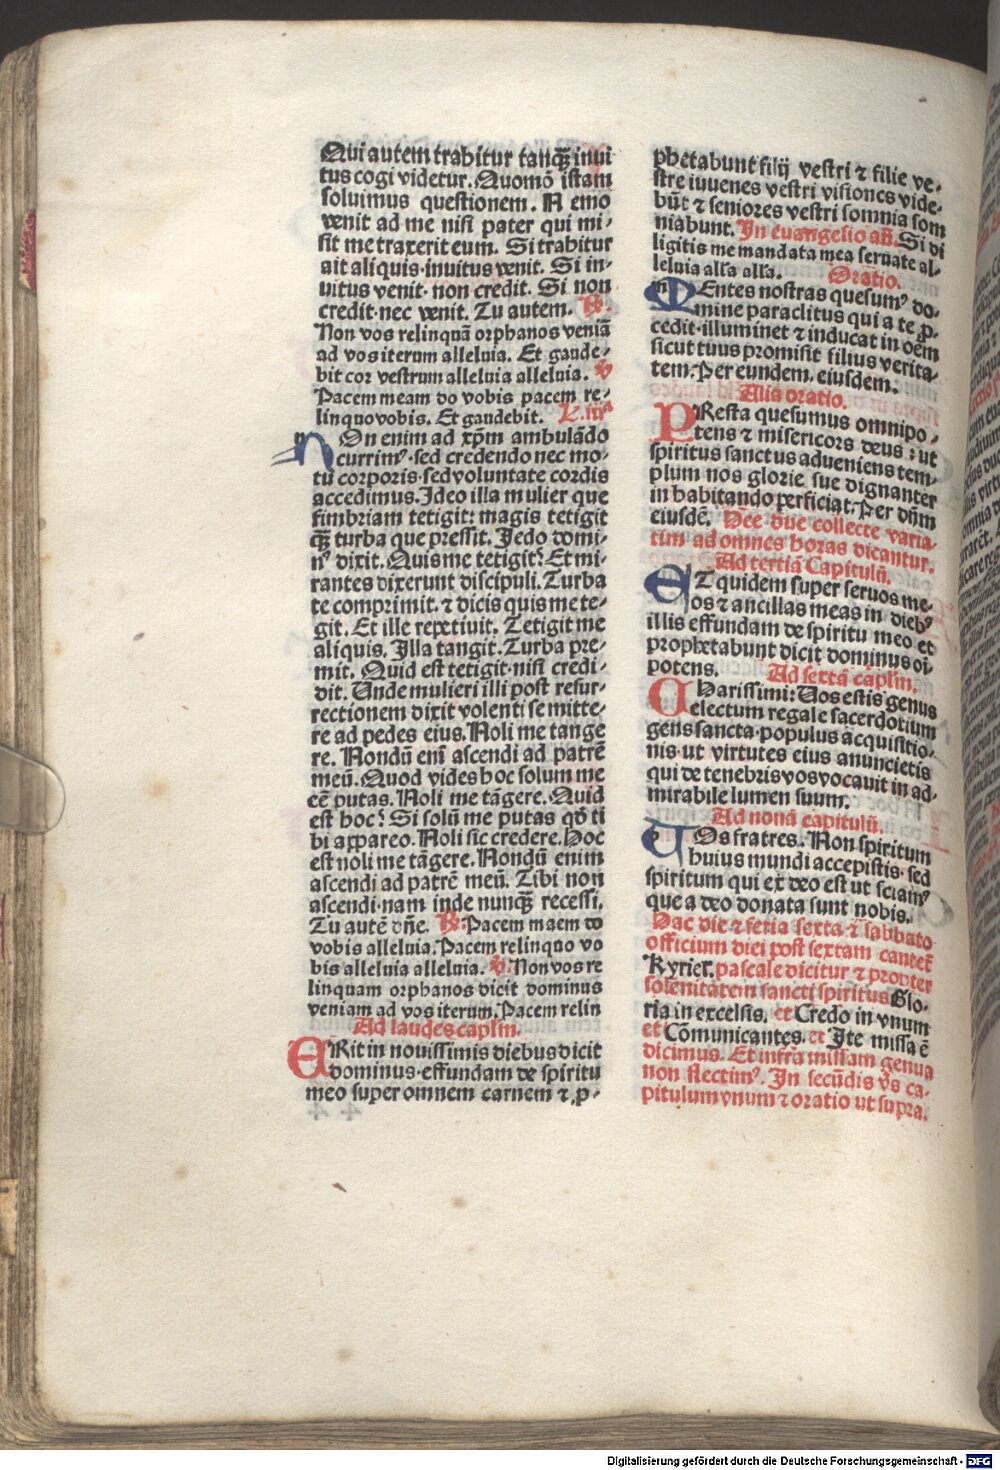 Qui autem trahitur tanqꝫ inui
tus cogi videtur. Quomō istam
soluimus questionem. Nemo
venit ad me nisi pater qui mi-
sit me traxerit eum. Si trahitur
ait aliquis·inuitus venit. Si in-
uitus venit· non credit. Si non
credit·nec venit. Tu autem. ꝶ.
Non vos relinquā orphanos veniā
ad vos iterum alleluia. Et gaude-
bit cor vestrum alleluia alleluia. ℣
Pacem meam do vobis pacem re-
linquo vobis. Et gaudebit. L.iiiᵃ
NOn enim ad xp̄m ambulādo
currimꝰ·sed credendo nec mo-
tu corporis·sed voluntate cordis
accedimus. Ideo illa mulier que
fimbriam tetigit: magis tetigit
qꝫ turba que pressit. Ideo domi-
nꝰ dixit. Quis me tetigit? Et mi-
rantes dixerunt discipuli. Turba
te comprimit. ⁊ dicis quis me te-
git. Et ille repetiuit. Tetigit me
aliquis. Illa tangit. Turba pre-
mit. Quid est tetigit·nisi credi-
dit. Unde mulieri illi post resur-
rectionem dixit volenti se mitte-
re ad pedes eius. Noli me tange
re. Nondū enī ascendi ad patrē
meū. Quod vides hoc solum me
eē putas. Noli me tāgere. Quid
est hoc? Si solū me putas qd̄ ti
bi appareo. Noli sic credere. hoc
est noli me tāgere. Nondū enim
ascendi ad patrē meū. Tibi non
ascendi·nam inde nunqꝫ recessi.
Tu autē dn̄e. ꝶ. Pacem maem do
vobis alleluia. Pacem relinquo vo
bis alleluia alleluia. ℣. Non vos re
linquam orphanos dicit dominus
veniam ad vos iterum. Pacem relin
Ad laudes capl̄m.
ERit in nouissimis diebus dicit
dominus·effundam de spiritu
meo super omnem carnem ⁊ ꝓ-
phetabunt filij vestri ⁊ filie ve-
stre iuuenes vestri visiones vide-
būt ⁊ seniores vestri somnia som
niabunt. In euangelio an̄. Si di
ligitis me mandata mea seruate al-
leluia all'a all'a. Oratio.
MEntes nostras quesumꝰ do-
mine paraclitus qui a te ꝓ-
cedit·illuminet ⁊ inducat in oēm
sicut tuus promisit filius verita-
tem. Per eundem. eiusdem.
Alia oratio.
PResta quesumus omnipo-
tens ⁊ misericors deus: ut
spiritus sanctus adueniens tem-
plum nos glorie sue dignanter
inhabitando perficiat. Per dn̄m
eiusdē. Hee due collecte varia-
tim ad omnes horas dicantur.
Ad tertiā Capitulū.
ET quidem super seruos me-
os ⁊ ancillas meas in diebꝰ
illis effundam de spiritu meo et
prophetabunt dicit dominus oī-
potens. Ad sextā capl̄m.
CHarissimi: Uos estis genus
electum regale sacerdotium
gens sancta·populus acquisitio-
nis·ut virtutes eius anuncietis
qui de tenebris vos vocauit in ad-
mirabile lumen suum.
Ad nonā capitulū.
UOs fratres. Non spiritum
huius mundi accepistis·sed
spiritum qui ex deo est ut sciamꝰ
que a deo donata sunt nobis.
Hac die ⁊ feria sexta ⁊ sabbato
officium diei post sextam cantet᷑
Kyriel'. pascale dicitur ⁊ propter
solenitatem sancti spiritus Glo-
ria in excelsis. et Credo in vnum
et Cōmunicantes. et Ite missa ē
dicimus. Et infra missam genua
non flectimꝰ. In secūdis v̄s ca-
pitulum vnum ⁊ oratio ut supra.
Digitalisierung gefördert durch die Deutsche Forschungsgemeinschaft - DFG